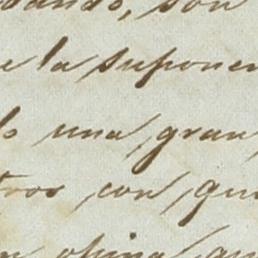 dando, son
e la suponen
lo una gran
tros con, que
n opina, qu